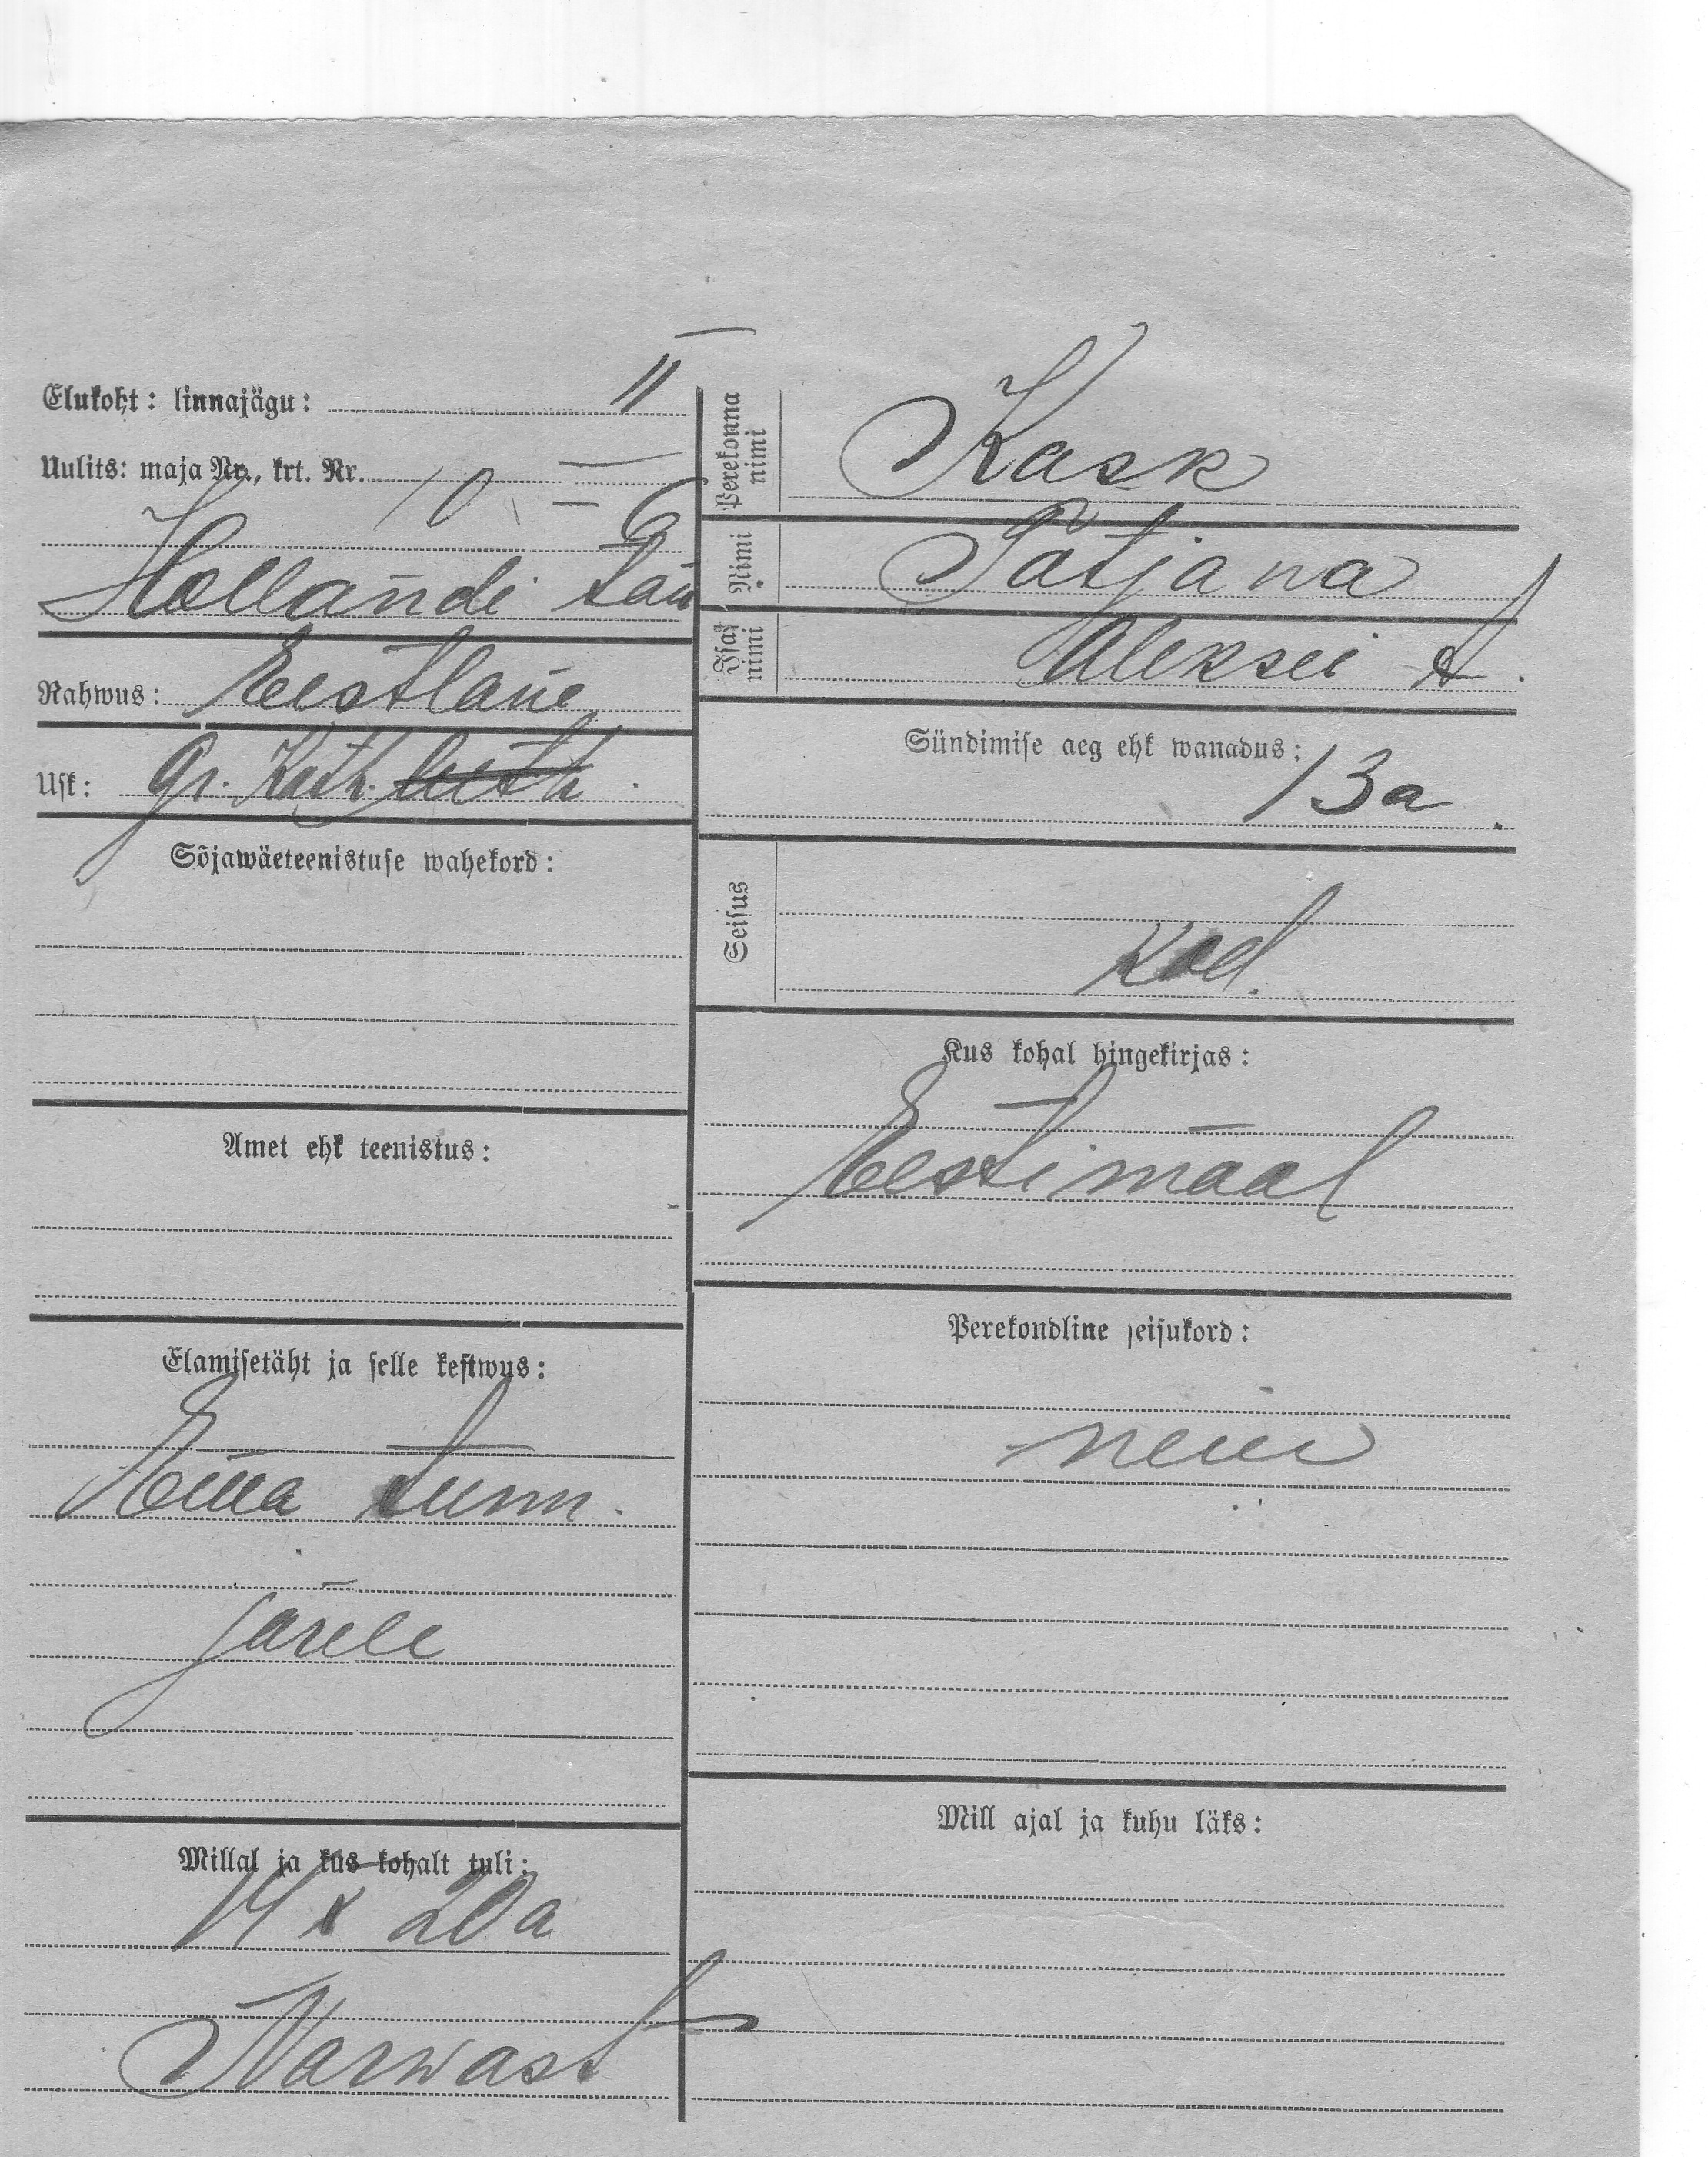 Elukoht: linnajägu: II
Uulits: maja Nr., krt. Nr. 10 – 6
Hollandi tän
Rahwus: Eestlane
Usk: Gr. Kath. luth.
Sõjawäeteenistuse wahekord:
Amet ehk teenistus:
Elamisetäht ja selle kestwus:
Ema tunn.
järele
Millal ja kus kohalt tuli:
14 X 20 a
Narwast
Perekonna nimi Kask
Nimi Tatjana
Isa nimi Aleksei t.
Sündimise aeg ehk wanadus:
13 a.
Seisus
Kod.
Kus kohal hingekirjas:
Eestimaal
Perekondline seisukord:
neiu
Mill ajal ja kuhu läks: